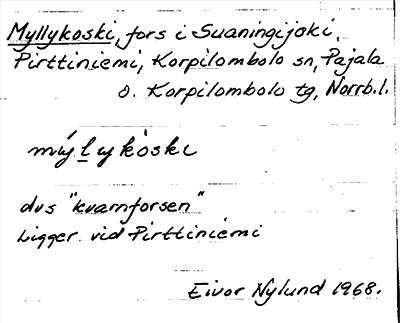 Myllykoski, fors i Suaningijoki,
Pirttiniemi, Korpilombolo sn, Pajala
o. Korpilombolo tg, Norrb.l.
mýlykòski
dvs "kvarnforsen"
Ligger vid Pirttiniemi
Eivor Nylund 1968.